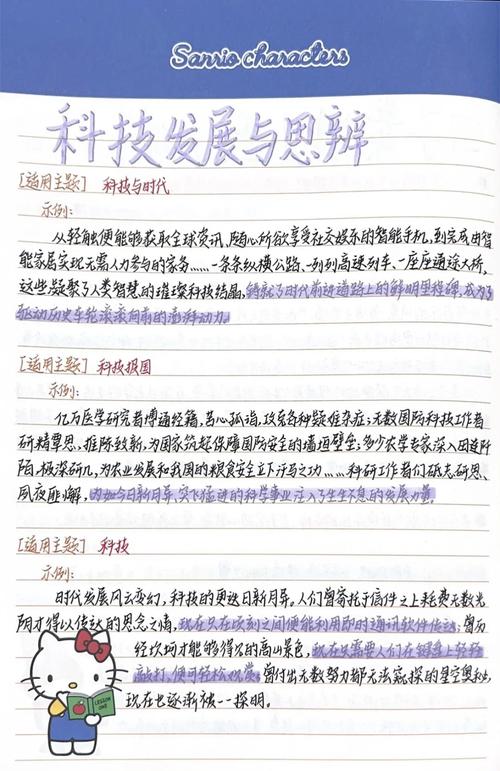 Sanrio characters
科技发展与思辨
[适用主题] 科技与时代
示例:
从轻触便能够获取全球资讯,随心所欲享受社交娱乐的智能手机,到完成由智
能家居实现无需人力参与的家务……一条条纵横公路、一列列高速列车、一座座通途大桥,
这些凝聚了人类智慧的璀璨科技结晶,铸就了时代前进道路上的鲜明里程碑,成为了
驱动历史车轮滚滚向前的澎湃动力。
[适用主题] 科技报国
示例:
亿万医学研究者博通经籍,苦心孤诣,攻克各种疑难杂症;无数国防科技工作者
研精覃思、推陈致新,为国家筑起保障国防安全的墙垣壁垒;多少农学专家深入田连阡
陌,极深研几,为农业发展和我国的粮食安全立下汗马之功……科研工作者们矻矻研思、
夙夜匪懈,为如今日新月异、突飞猛进的科学事业注入了生生不息的发展力量。
[适用主题] 科技
示例:
时代发展风云变幻,科技的更迭日新月异。人们曾寄托于信件之上耗费无数光
阴才得以传达的思念之情,现在只在顷刻之间便能利用即时通讯软件传达;曾历
经坎坷才能够得见的高山景色,现在只需要人们在键盘上轻轻
敲打,便可轻松欣赏;曾付出无数努力却无法窥探的星空奥秘,
现在也逐渐被一一探明。
LESSON
ONE